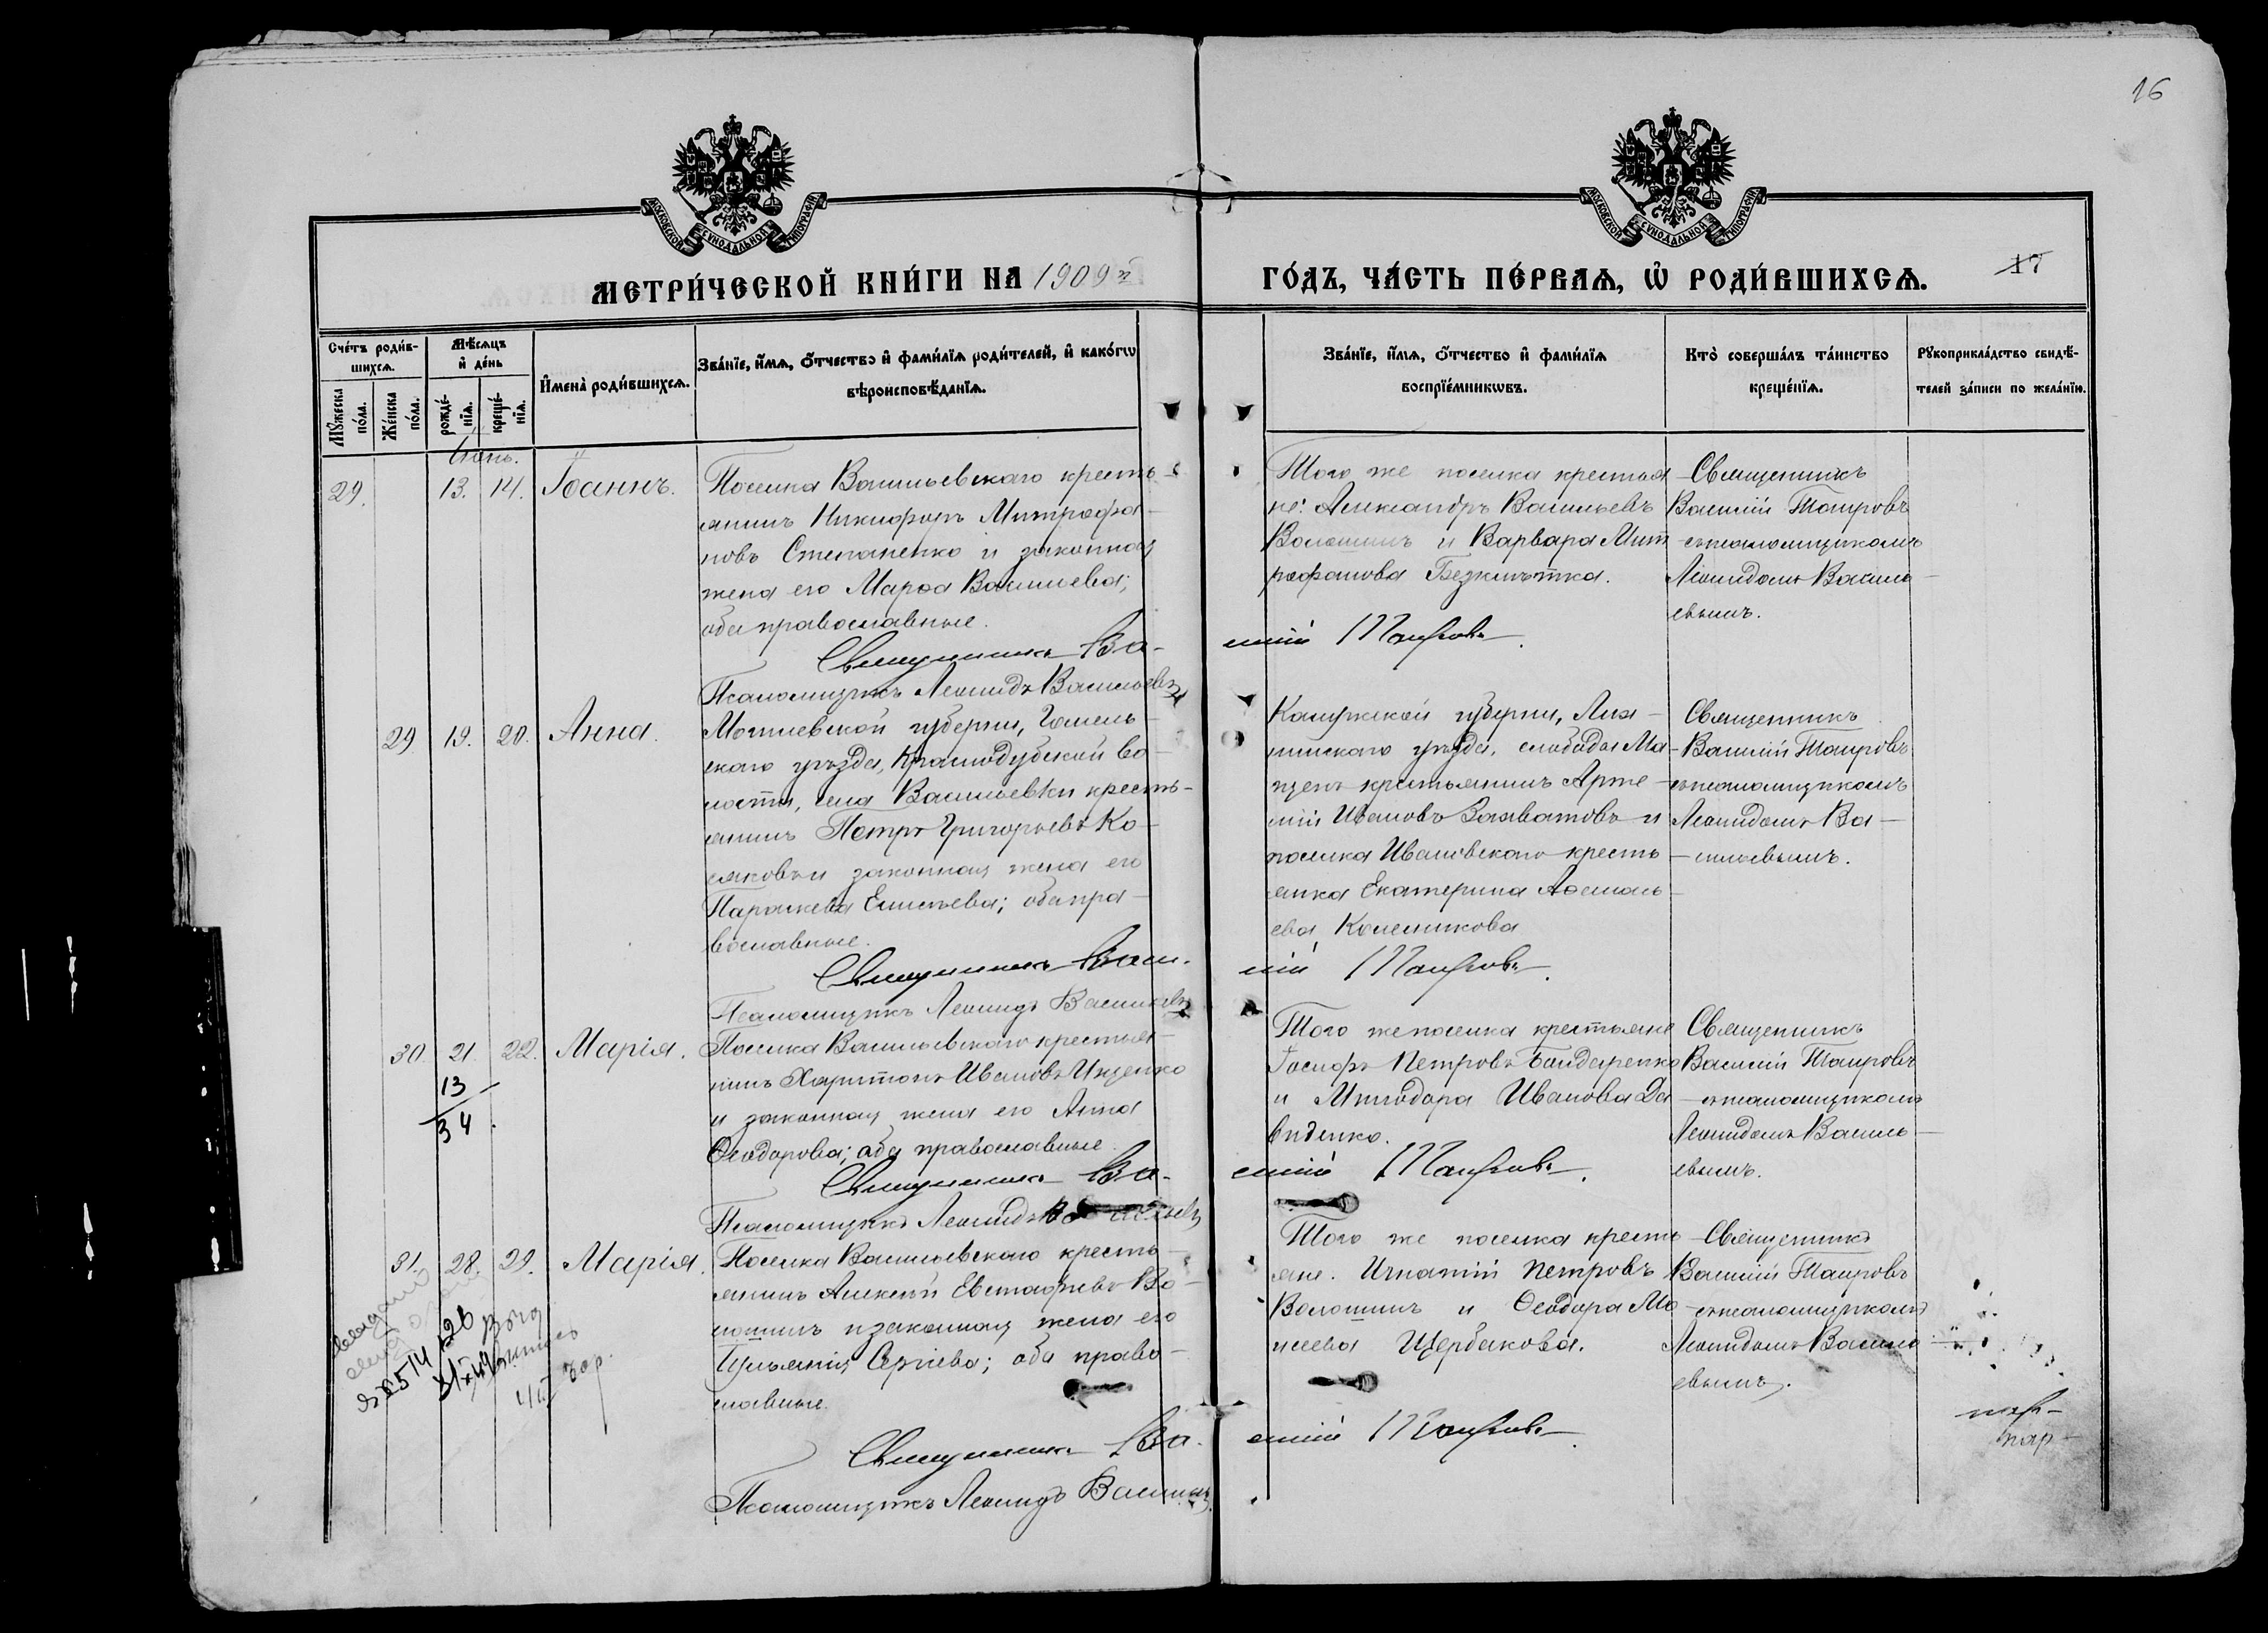 16
МОСКОВСКОЙ СѴНОДАЛЬНОЙ ТИПОГРАФІИ
МОСКОВСКОЙ СѴНОДАЛЬНОЙ ТИПОГРАФІИ
МЕТРИ́ЧЕСКОЙ КНИ́ГИ НА 1909й
ГО́ДЪ, ЧА́СТЬ ПЕ́РВАѦ, Ѡ҆ РОДИ́ВШИХСѦ.
17
Сче́тъ роди́в-
шихсѧ.
Мꙋ́жеска по́ла.
Же́нска по́ла.
Мѣ́сѧцъ и҆ де́нь
рожде́-
нїѧ.
креще́-
нїѧ.
И҆мена̀ роди́вшихсѧ.
Зва́нїе, и҆́мѧ, ѻ҆́тчество и҆ фами́лїѧ роди́телей, и҆ како́гѡ
вѣроисповѣ́данїѧ.
Зва́нїе, и҆́мѧ, ѻ҆́тчество и҆ фами́лїѧ
воспрїе́мникѡвъ.
Кто̀ соверша́лъ та́инство
креще́нїѧ.
Рꙋкоприкла́дство свидѣ́-
телей за́писи по жела́нїю.
Іюнь.
29.
13.
14.
Іоаннъ.
Поселка Васильевскаго кресть-
янинъ Никифоръ Митрофа-
новъ Степаненко и законная
жена его Марѳа Васильева;
оба православные.
Священникъ Ва-
силій Таировъ.
Псаломщикъ Леонидъ Васильевъ
Того же поселка крестья
не: Александръ Васильевъ
Волошинъ и Варвара Мит
рофанова
Священникъ
Василій Таировъ
съ псаломщикомъ
Леонидомъ Василь-
евымъ.
29
19.
20.
Анна.
Могилевской губерніи, Гомель-
скаго уѣзда, Краснодубской во-
лости, села Васильевки кресть-
янинъ Петръ Григорьевъ Ко-
и законная жена его
Параскева Елисеева; оба пра-
вославные.
Священникъ Васи-
лій Таировъ.
Псаломщикъ Леонидъ Васильевъ
Калужской губерніи, Лих-
винскаго уѣзда, слободы
крестьянинъ Арте-
мій Ивановъ и
поселка Ивановскаго кресть-
янка Екатерина
ева Колесникова
Священникъ
Василій Таировъ
съ псаломщикомъ
Леонидомъ Ва-
сильевымъ.
30.
21.
22.
Марія.
13
34
Поселка Васильевскаго крестья-
нинъ Харитонъ Ивановъ Ищенко
и законная жена его Анна
Ѳеодорова; оба православные.
Священникъ Ва-
силій Таировъ.
Псаломщикъ Леонидъ Васильевъ
Того же поселка крестьяне
Іосифъ Петровъ Бондаренко
и Митодора Иванова Да
виденко.
Священникъ
Василій Таировъ
съ псаломщикомъ
Леонидомъ Василь-
евымъ.
31.
28.
29.
Марія.
Поселка Васильевскаго кресть-
янинъ Алексѣй Евстафьевъ Во-
лошинъ и законная жена его
Іуліанія Сергіева; оба право-
славные.
Священникъ Ва-
силій Таировъ.
Псаломщикъ Леонидъ Васильевъ.
Того же поселка кресть
яне. Игнатій Петровъ
Волошинъ и Ѳеодора Мо
исеева Щербакова.
Священникъ
Василій Таировъ
съ псаломщикомъ
Леонидомъ Василь-
евымъ.